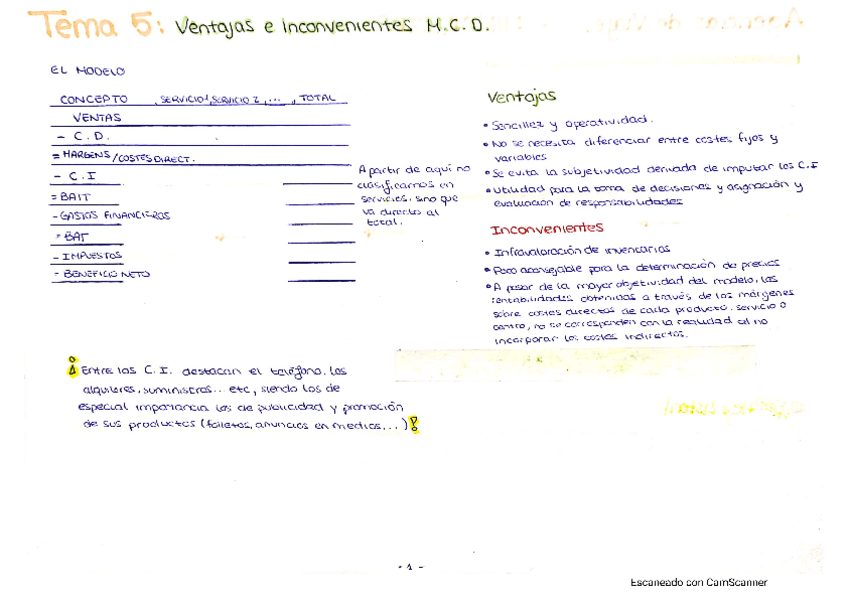 Tema 5: Ventajas e inconvenientes M.C.D.
EL MODELO
CONCEPTO , SERVICIO 1, SERVICIO 2, ... , TOTAL
VENTAS
- C.D.
= MARGENS / COSTES DIRECT.
- C.I
= BAIT
- GASTOS FINANCIEROS
= BAT
- IMPUESTOS
= BENEFICIO NETO
A partir de aquí no
clasificamos en
servicios, sino que
va directo al
total.
¡Entre los C.I. destacan el teléfono, los
alquileres, suministros... etc, siendo los de
especial importancia los de publicidad y promoción
de sus productos (folletos, anuncios en medios,...)!
Ventajas
• Sencillez y operatividad.
• No se necesita diferenciar entre costes fijos y
variables
• Se evita la subjetividad derivada de imputar los C.I
• Utilidad para la toma de decisiones y asignación y
evaluación de responsabilidades
Inconvenientes
• Infravaloración de inventarios
• Poco aconsejable para la determinación de precios
• A pesar de la mayor objetividad del modelo, las
rentabilidades obtenidas a través de los márgenes
sobre costes directos de cada producto, servicio o
centro, no se corresponden con la realidad al no
incorporar los costes indirectos.
- 1 -
Escaneado con CamScanner